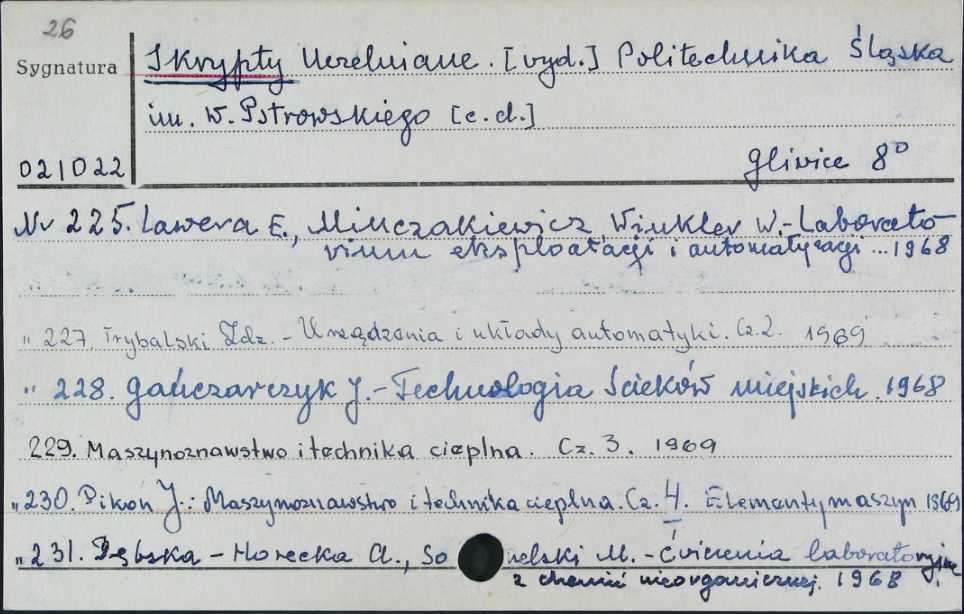 26
Sygnatura
Skrypty Uczelniane. [wyd.] Politechnika Śląska
im. W. Pstrowskiego [c.d.]
021022
Gliwice 8°
Nr 225. Lawera E., Minczakiewicz, Winkler W.- Laborato-
rium eksploatacji i automatyzacji ... 1968
" 227. Trybalski Zdz. - Urządzenia i układy automatyki. Cz. 2. 1969
" 228. Gańczarczyk J.- Technologia Ścieków miejskich. 1968
229. Maszynoznawstwo i technika cieplna. Cz. 3. 1969
" 230. Pikoń J.: Maszynoznawstwo i technika cieplna. Cz. 4. Elementy maszyn 1969
" 231. Dębska - Horecka A., So nelski M. - Ćwiczenia laboratoryjne
z chemii nieorganicznej. 1968